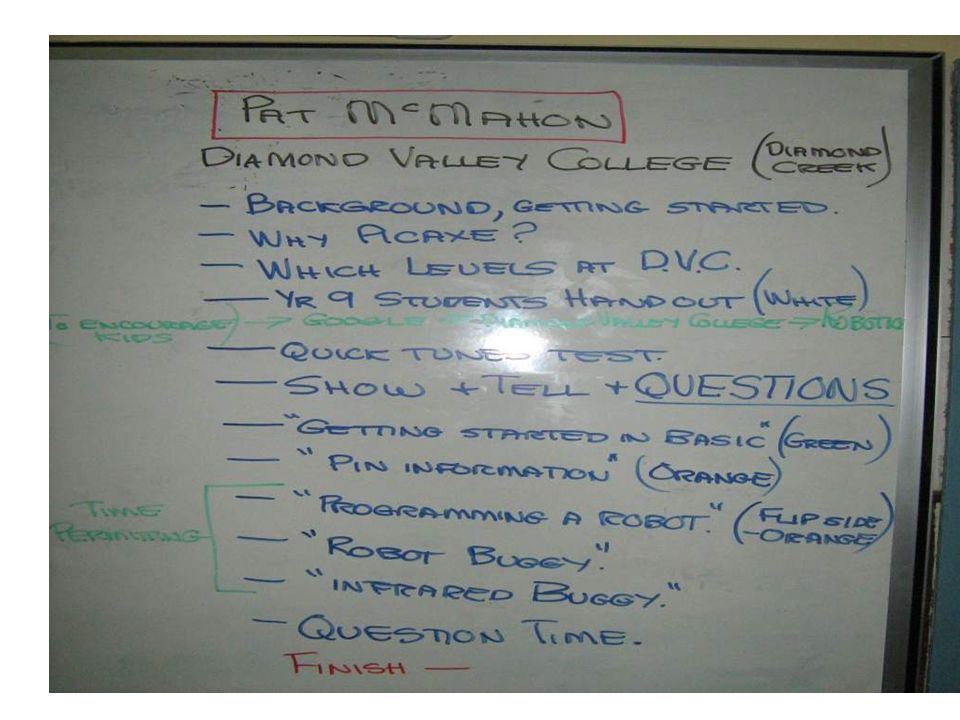 PAT McMAHON
DIAMOND VALLEY COLLEGE (DIAMOND CREEK)
- BACKGROUND, GETTING STARTED.
- WHY PICAXE?
- WHICH LEVELS AT D.V.C.
- YR 9 STUDENTS HANDOUT (WHITE)
TO ENCOURAGE KIDS) → GOOGLE → DIAMOND VALLEY COLLEGE → ROBOTIC
- QUICK TUNES TEST.
- SHOW + TELL + QUESTIONS
- "GETTING STARTED IN BASIC" (GREEN)
- "PIN INFORMATION" (ORANGE)
TIME PERMITTING
- "PROGRAMMING A ROBOT." (FLIP SIDE - ORANGE)
- "ROBOT BUGGY."
- "INFRARED BUGGY."
- QUESTION TIME.
FINISH —